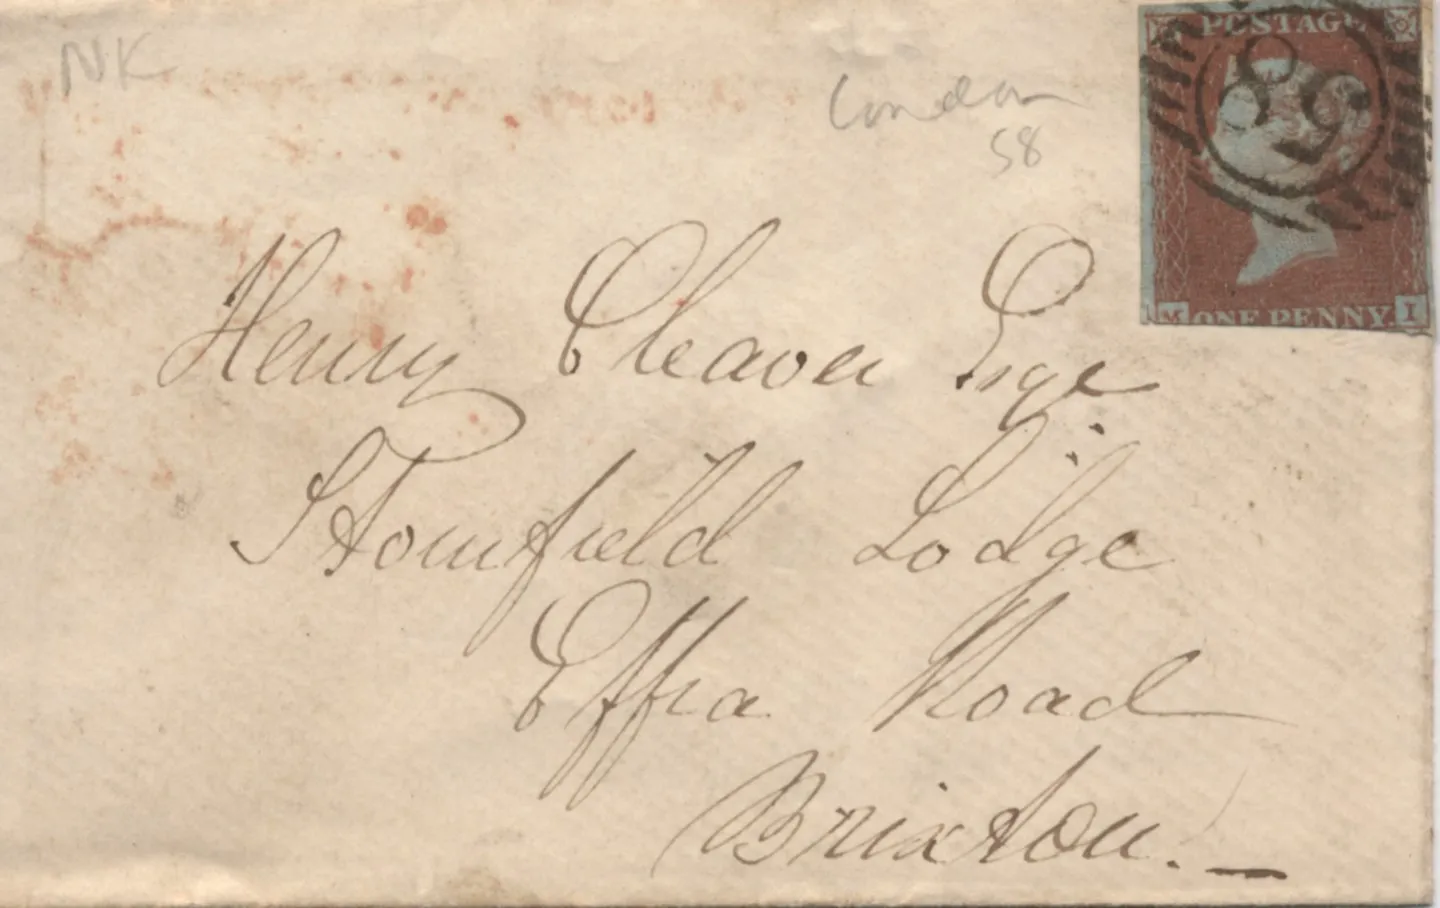 NK
London
58
POSTAGE
58
M ONE PENNY. I
Henry Cleaver Esqe
Stonefield Lodge
Effra Road
Brixton.